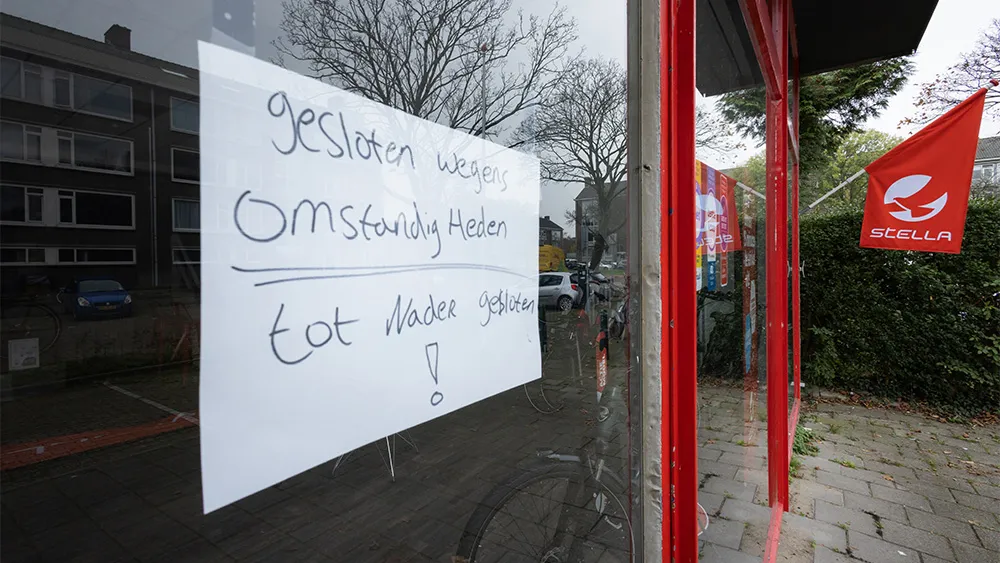 gesloten wegens
omstandig Heden
tot Nader gesloten
!
STELLA